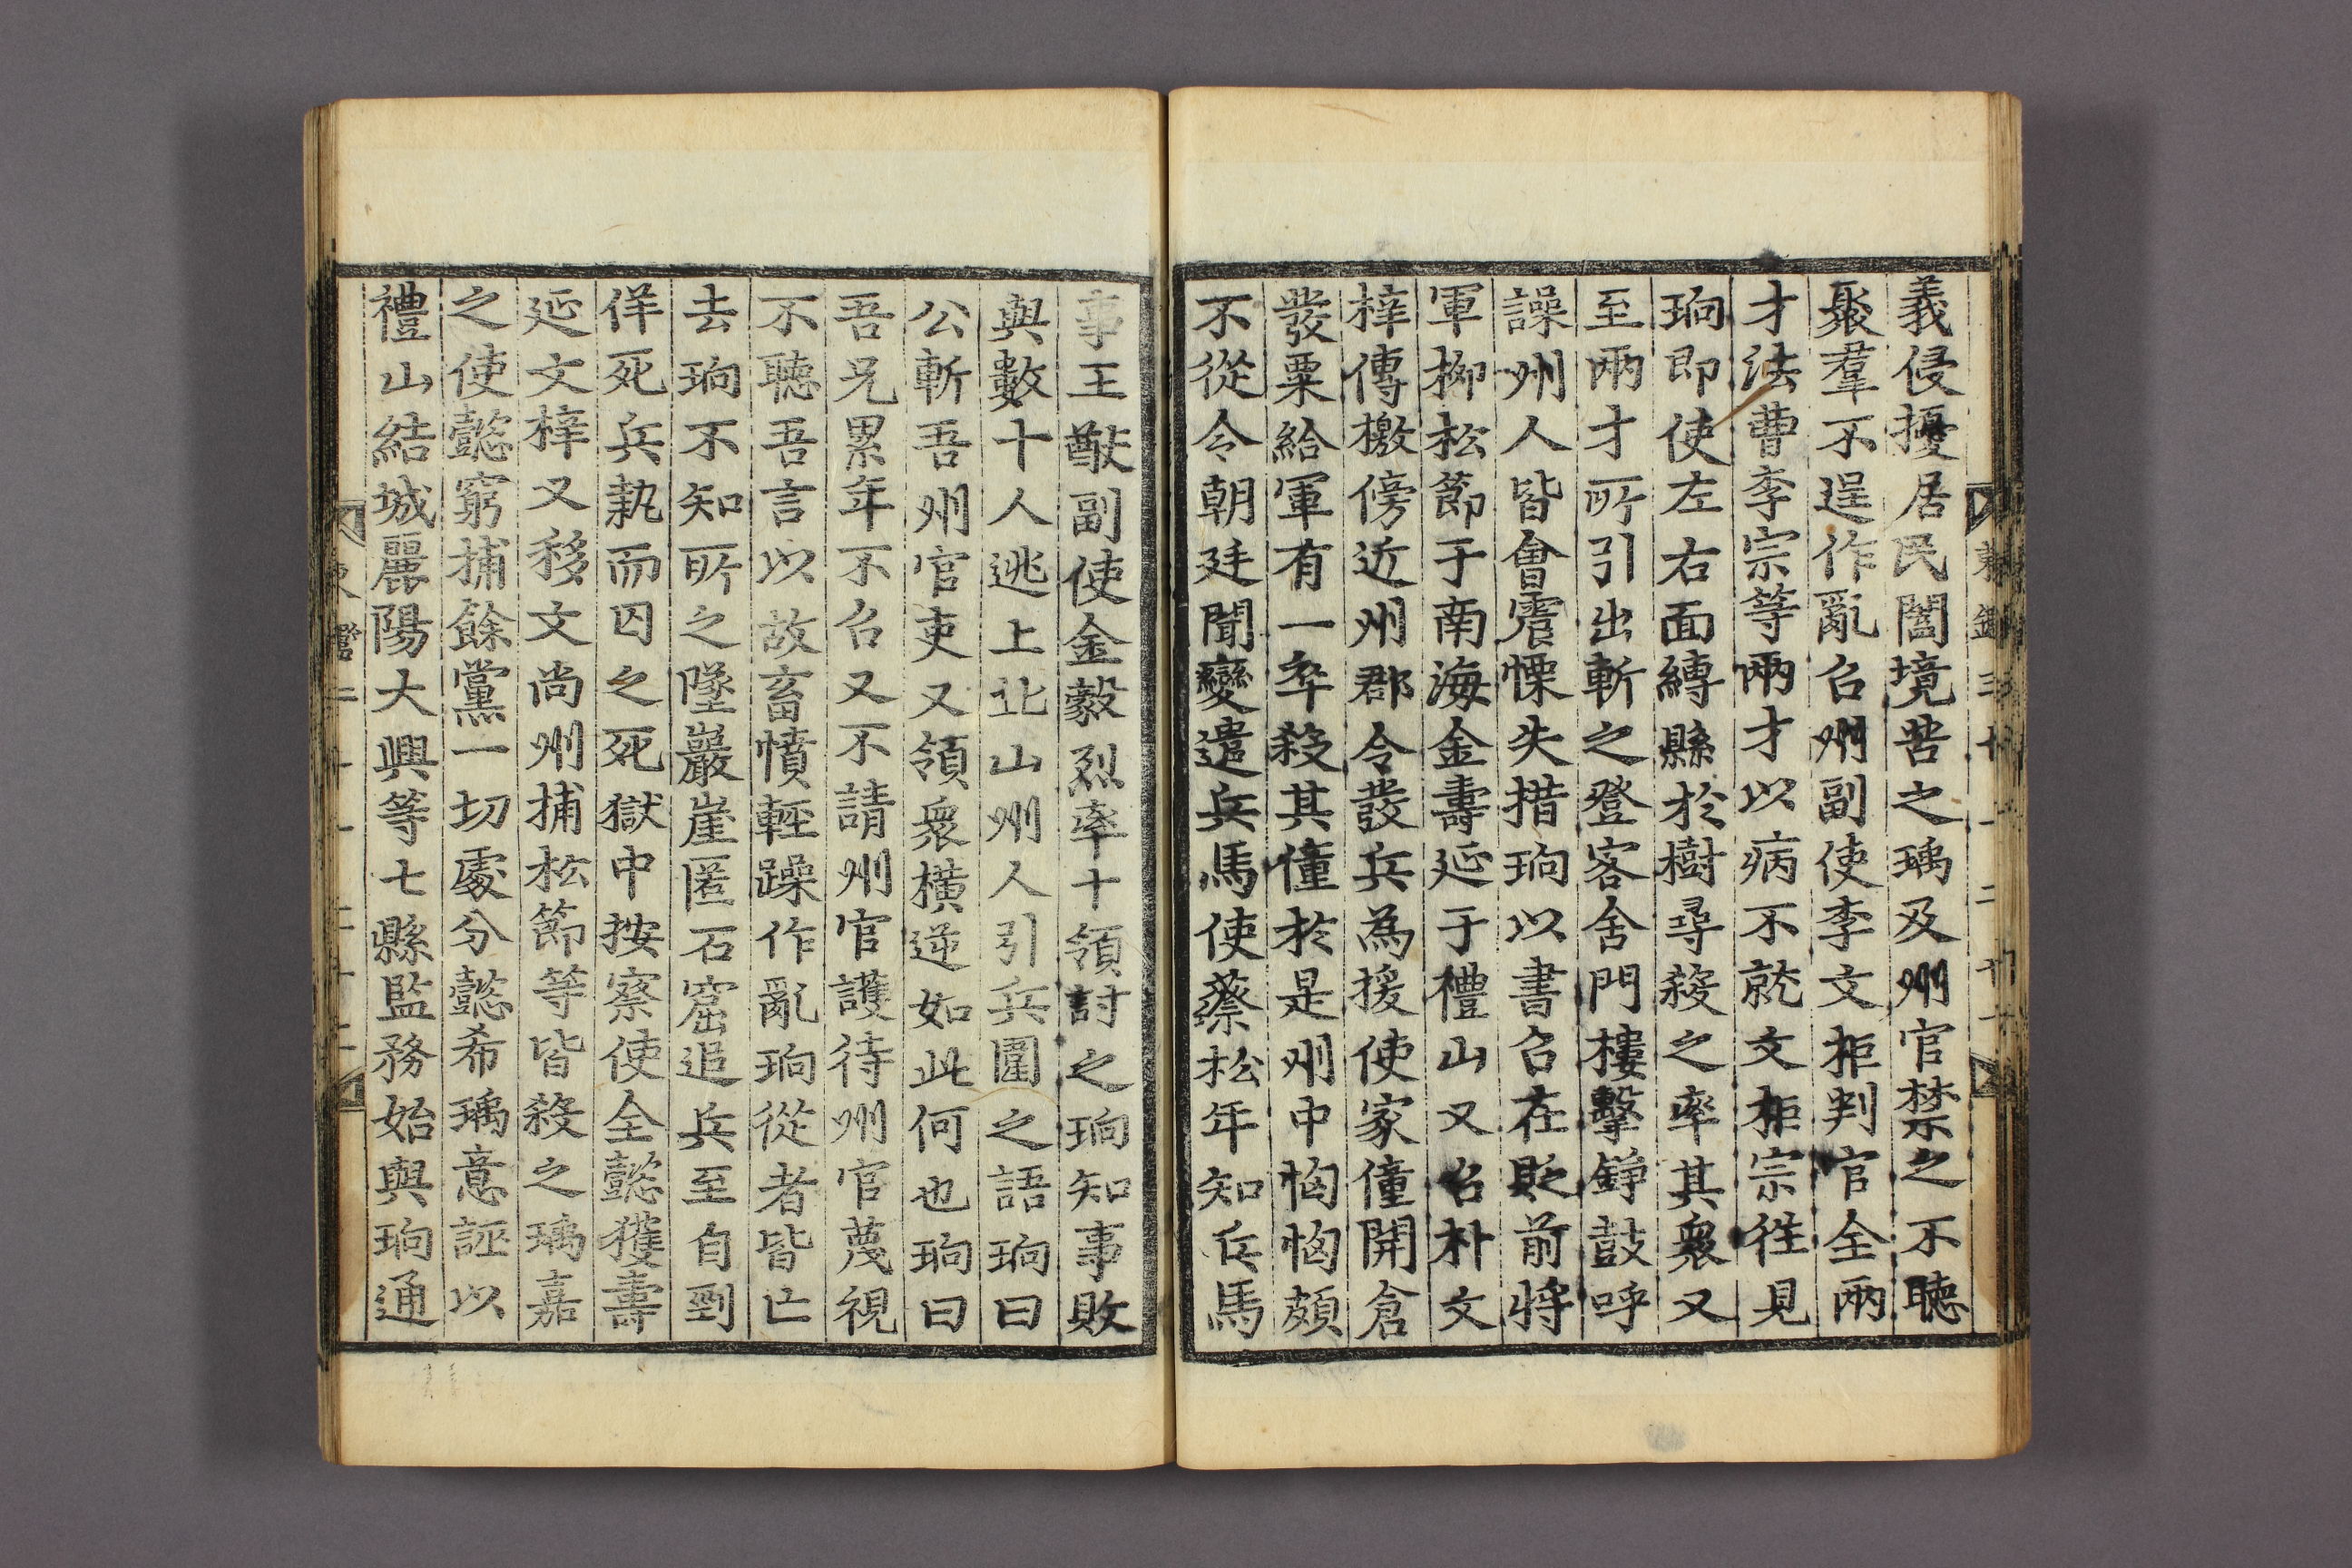 義侵擾居民闔境苦之瑀及州官禁之不聽
聚羣不逞作亂召州副使李文柜判官全兩
才法曹李宗等兩才以病不就文柜宗徃見
珦即使左右面縛縣於樹尋殺之率其衆又
至兩才所引出斬之登客舍門樓擊錚鼓呼
譟州人皆會震慄失措珦以書召在貶前將
軍柳松節于南海金壽延于禮山又召朴文
梓傳檄傍近州郡令發兵為援使家僮開倉
發粟給軍有一卒殺其僮於是州中恟恟頗
不從令朝廷聞變遣兵馬使蔡松年知兵馬
事王猷副使金毅烈率十領討之珦知事敗
與數十人逃上北山州人引兵圍之語珦曰
公斬吾州官吏又領衆橫逆如此何也珦曰
吾兄累年不召又不請州官護待州官蔑視
不聽吾言以故畜憤輕躁作亂珦從者皆亡
去珦不知所之墜巖崖匿石窟追兵至自剄
佯死兵執而囚之死獄中按察使全懿獲壽
延文梓又移文尚州捕松節等皆殺之瑀嘉
之使懿窮捕餘黨一切處分懿希瑀意誣以
禮山結城麗陽大興等七縣監務始與珦通